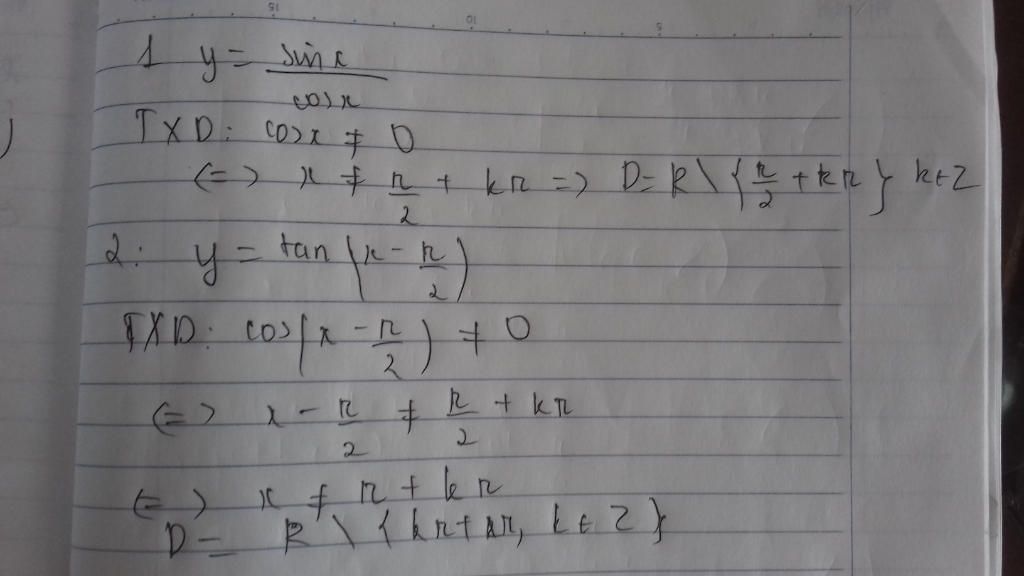 1 y = sin x / cos x
TXD: cos x ≠ 0
<=> x ≠ π/2 + kπ => D = R \ {π/2 + kπ} k ∈ Z
2: y = tan (x - π/2)
TXD: cos (x - π/2) ≠ 0
<=> x - π/2 ≠ π/2 + kπ
<=> x ≠ π + kπ
D = R \ {kπ + kπ, k ∈ Z}